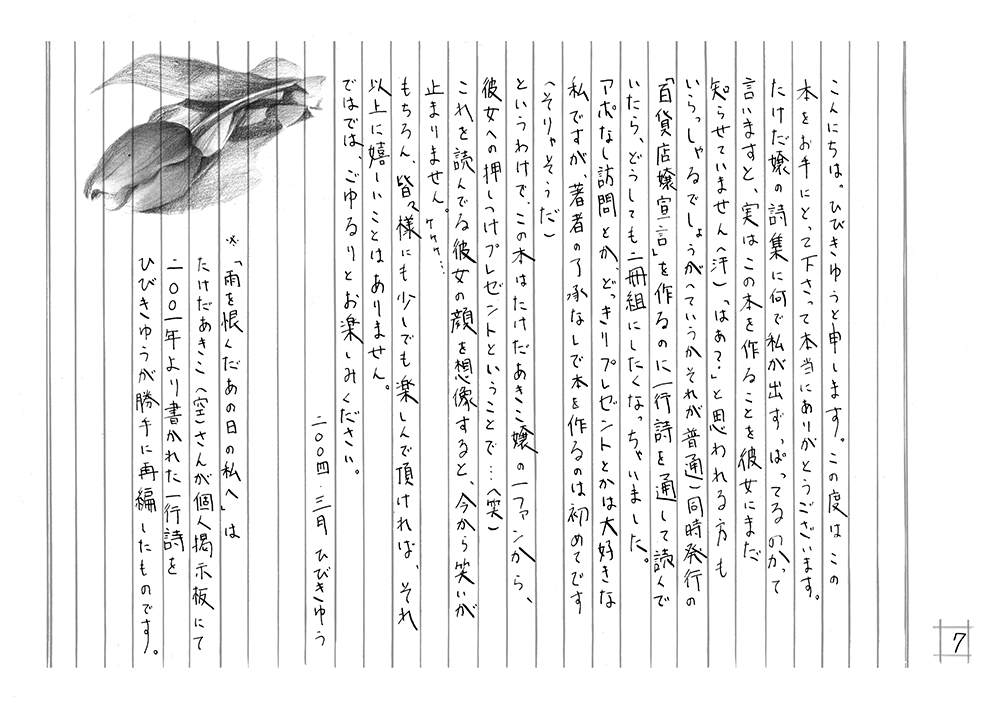 こんにちは。ひびきゆうと申します。この度は この
本をお手にとって下さって本当にありがとうございます。
たけだ嬢の詩集に何で私が出ずっぱってるのかって
言いますと、実はこの本を作ることを彼女にまだ
知らせていません(汗)「はあ?」と思われる方も
いらっしゃるでしょうが(ていうかそれが普通)同時発行の
「百貨店嬢宣言」を作るのに一行詩を通して読んで
いたら、どうしても二冊組にしたくなっちゃいました。
アポなし訪問とか、どっきりプレゼントとかは大好きな
私ですが、著者の了承なしで本を作るのは初めてです
(そりゃそうだ)
というわけで、この本はたけだあきこ嬢の一ファンから、
彼女への押しつけプレゼントということで…(笑)
これを読んでる彼女の顔を想像すると、今から笑いが
止まりません。ケケケ…
もちろん、皆々様にも少しでも楽しんで頂ければ、それ
以上に嬉しいことはありません。
ではでは、ごゆるりとお楽しみください。
二〇〇四.三月 ひびきゆう
※「雨を恨くだあの日の私へ」は
たけだあきこ(空)さんが個人掲示板にて
二〇〇一年より書かれた一行詩を
ひびきゆうが勝手に再編したものです。
7